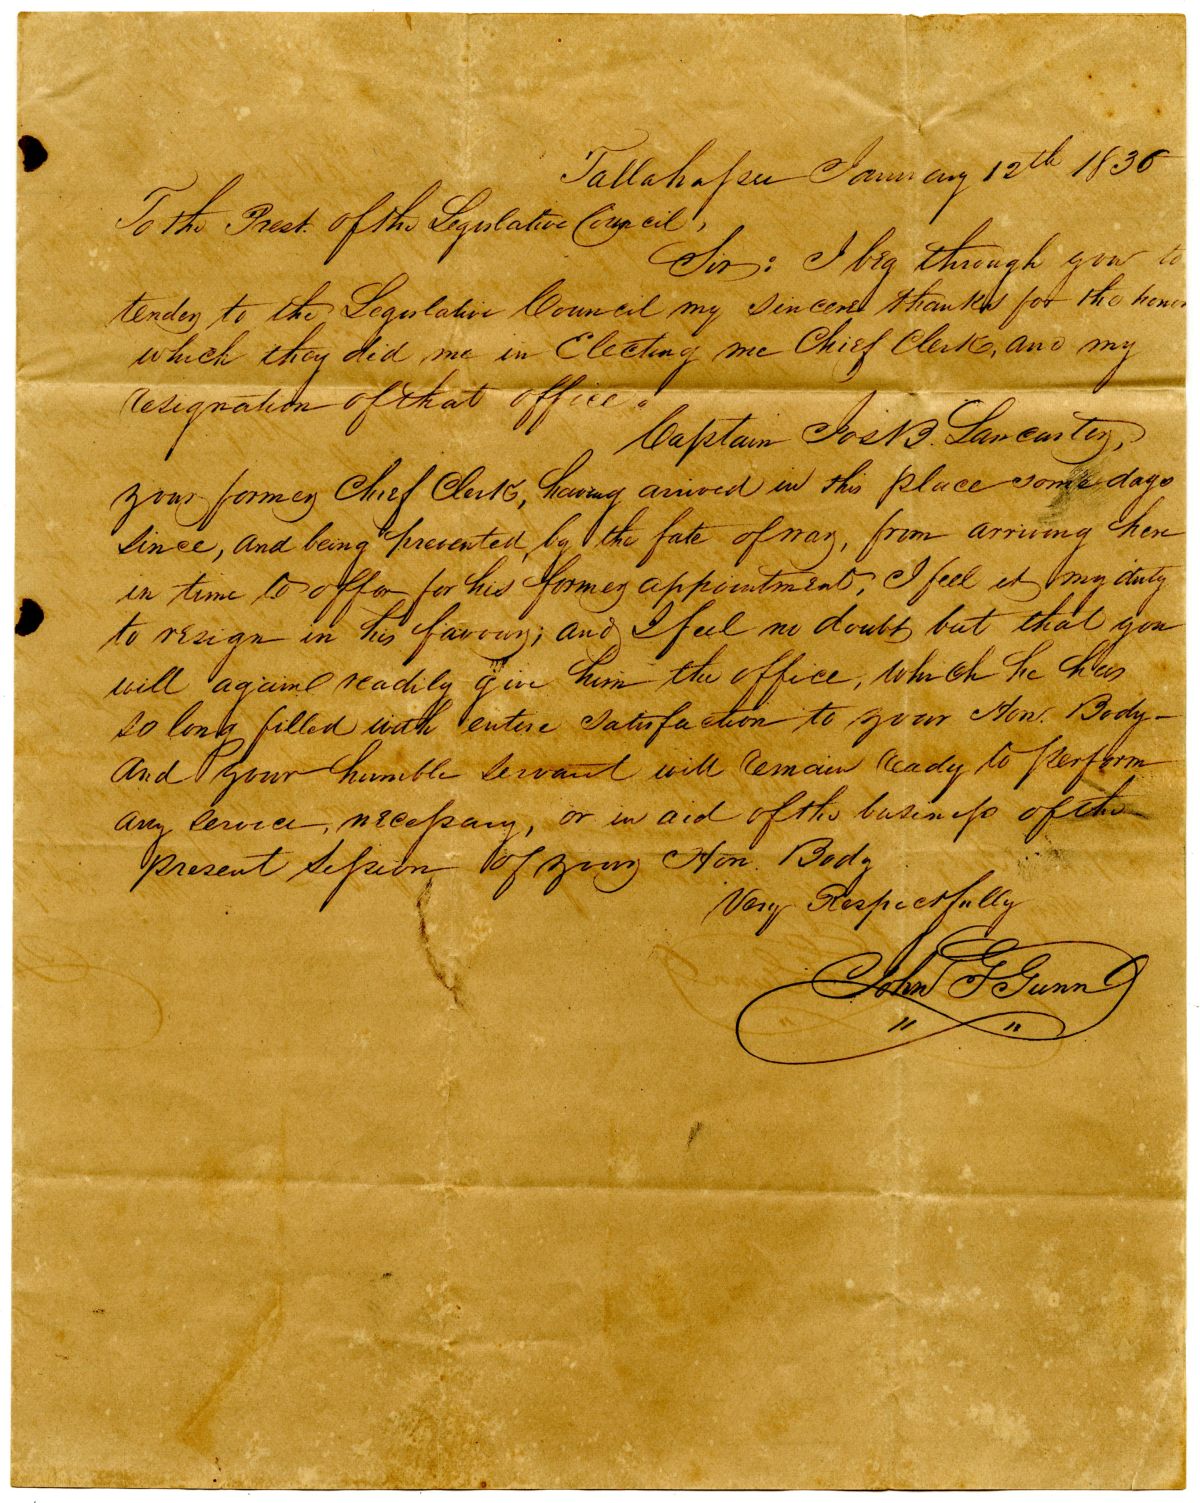 Tallahassee January 12th 1836
To the Prest. of the Legislative Council,
Sir: I beg through you to
tender to the Legislative Council my sincere thanks for the honor
which they did me in Electing me Chief Clerk, and my
resignation of that office.
Captain Jos B. Lancaster,
your former Chief Clerk, having arrived in this place some days
since, and being prevented, by the fate of war, from arriving here
in time to offer for his former appointment, I feel it my duty
to resign in his favour; and I feel no doubt but that you
will again readily give him the office, which he has
so long filled with entire satisfaction to your Hon. Body—
And your humble servant will remain ready to perform
any service, necessary, or in aid of the business of the
present session of your Hon. Body
Very Respectfully
John G Gunn